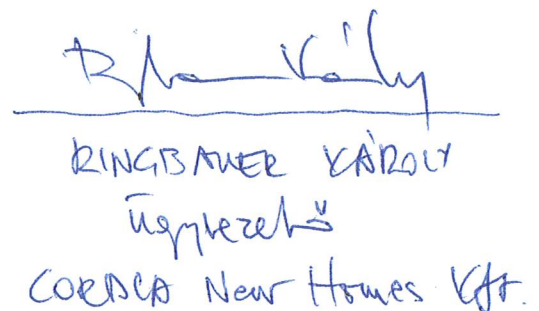 RINGBAUER KÁROLY
ügyvezető
New Homes Kft.